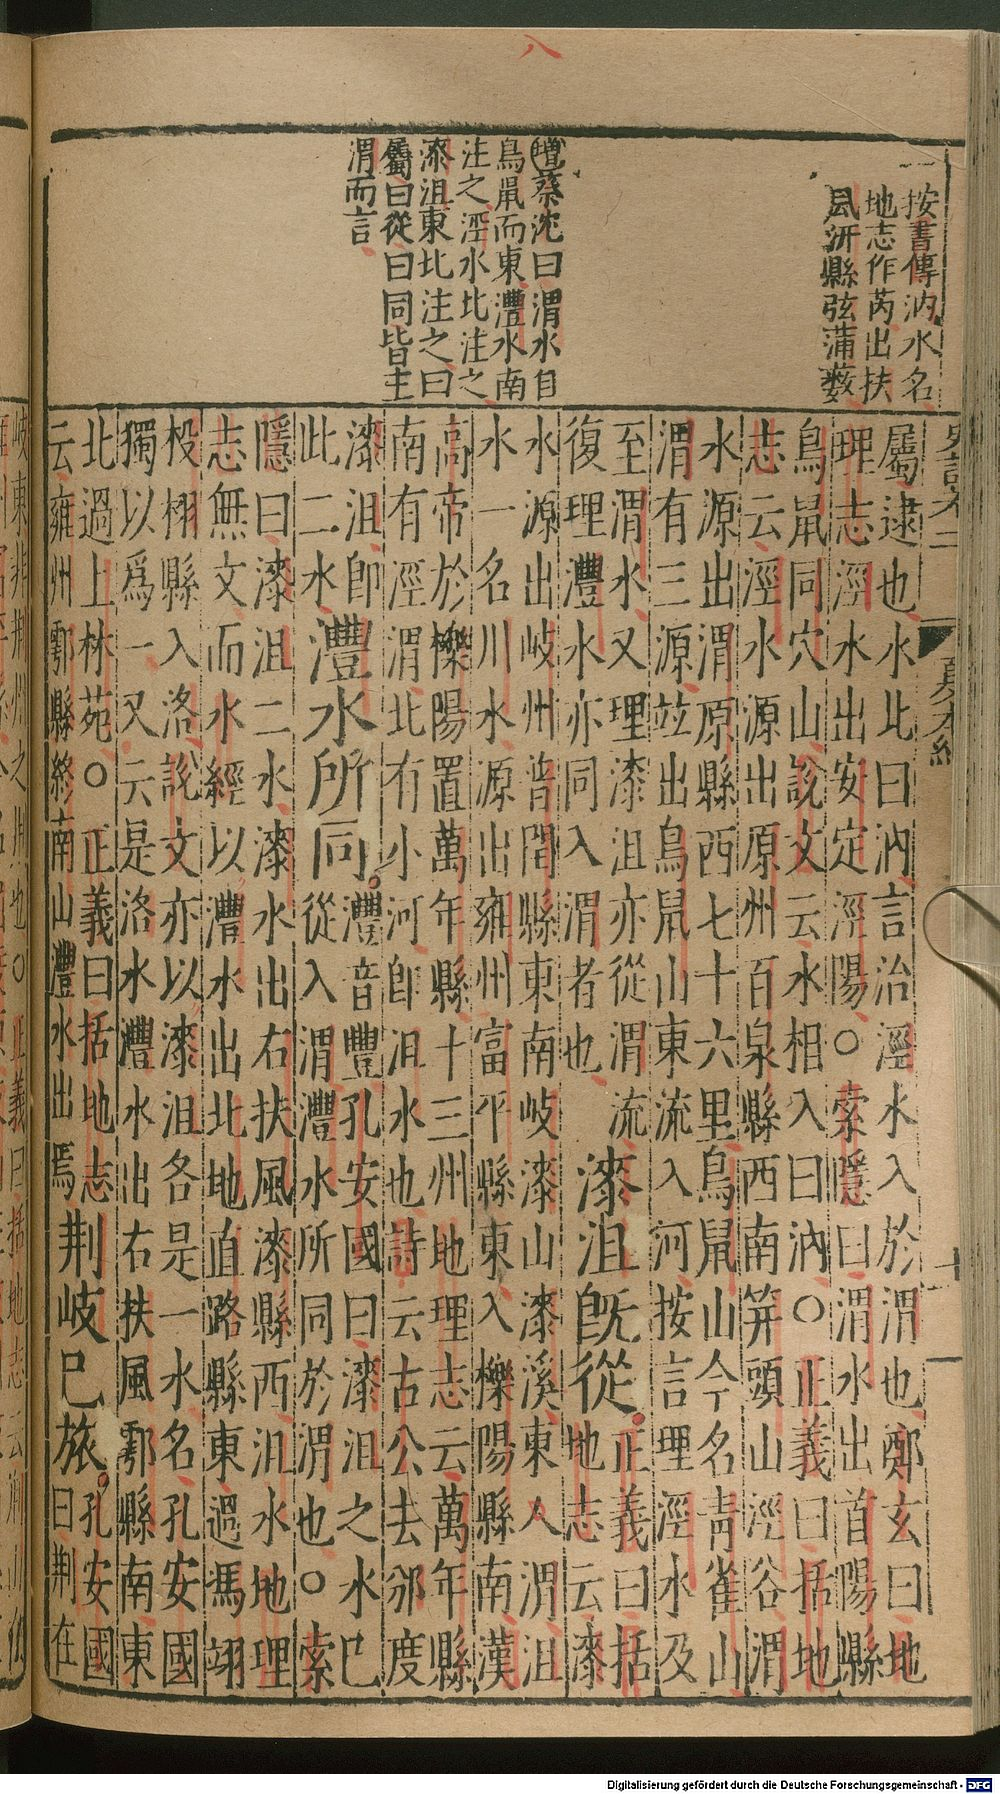 八
按書傳汭水名
地志作芮出扶
風汧縣弦蒲藪
增蔡沈曰渭水自
鳥鼠而東灃水南
注之涇水北注之
漆沮東北注之曰
屬曰從曰同皆主
渭而言
史記卷二 夏本紀 十
屬逮也水北曰汭言治涇水入於渭也鄭玄曰地
理志涇水出安定涇陽○索隱曰渭水出首陽縣
鳥鼠同穴山說文云水相入曰汭○正義曰括地
志云涇水源出原州百泉縣西南笄頭山涇谷渭
水源出渭原縣西七十六里鳥鼠山今名青雀山
渭有三源竝出鳥鼠山東流入河按言理涇水及
至渭水又理漆沮亦從渭流
復理灃水亦同入渭者也
漆沮旣從。
正義曰括
地志云漆
水源出岐州普閏縣東南岐漆山漆溪東入渭沮
水一名川水源出雍州富平縣東入櫟陽縣南漢
高帝於櫟陽置萬年縣十三州地理志云萬年縣
南有涇渭北有小河卽沮水也詩云古公去邠度
漆沮卽
此二水
灃水所同。
灃音豐孔安國曰漆沮之水已
從入渭灃水所同於渭也○索
隱曰漆沮二水漆水出右扶風漆縣西沮水地理
志無文而水經以灃水出北地直路縣東過馮翊
祋栩縣入洛說文亦以漆沮各是一水名孔安國
獨以爲一又云是洛水灃水出右扶風鄠縣南東
北過上林苑○正義曰括地志
云雍州鄠縣終南山灃水出焉
荆岐已旅。
孔安國
曰荆在
Digitalisierung gefördert durch die Deutsche Forschungsgemeinschaft - DFG